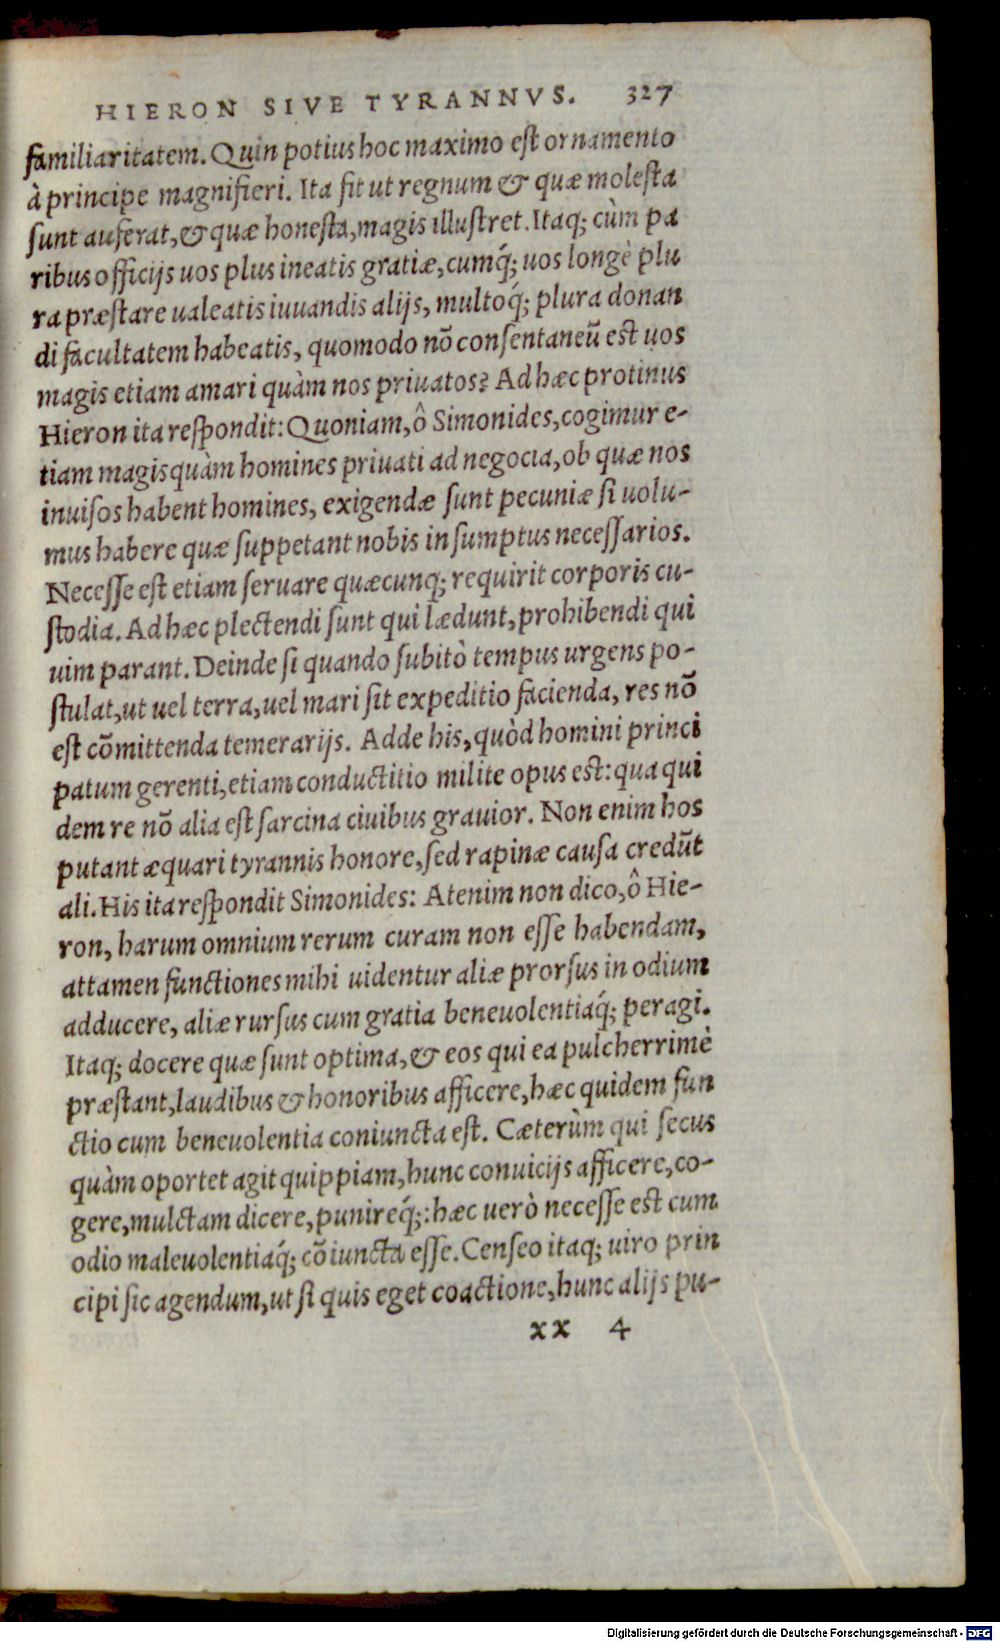 HIERON SIVE TYRANNVS. 327
familiaritatem. Quin potius hoc maximo est ornamento
à principe magnifieri. Ita fit ut regnum & quæ molesta
sunt auferat, & quæ honesta, magis illustret. Itaq; cùm pa
ribus officijs uos plus ineatis gratiæ, cumq́; uos longè plu
ra præstare ualeatis iuuandis alijs, multoq́; plura donan
di facultatem habeatis, quomodo nõ consentaneũ est uos
magis etiam amari quàm nos priuatos? Ad hæc protinus
Hieron ita respondit: Quoniam, ô Simonides, cogimur e-
tiam magis quàm homines priuati ad negocia, ob quæ nos
inuisos habent homines, exigendæ sunt pecuniæ si uolu-
mus habere quæ suppetant nobis in sumptus necessarios.
Necesse est etiam seruare quæcunq; requirit corporis cu-
stodia. Ad hæc plectendi sunt qui lædunt, prohibendi qui
uim parant. Deinde si quando subitò tempus urgens po-
stulat, ut uel terra, uel mari sit expeditio facienda, res nõ
est cõmittenda temerarijs. Adde his, quòd homini princi
patum gerenti, etiam conductitio milite opus est: qua qui
dem re nõ alia est sarcina ciuibus grauior. Non enim hos
putant æquari tyrannis honore, sed rapinæ causa credũt
ali. His ita respondit Simonides: At enim non dico, ô Hie-
ron, harum omnium rerum curam non esse habendam,
attamen functiones mihi uidentur aliæ prorsus in odium
adducere, aliæ rursus cum gratia beneuolentiaq́; peragi.
Itaq; docere quæ sunt optima, & eos qui ea pulcherrimè
præstant, laudibus & honoribus afficere, hæc quidem fun
ctio cum beneuolentia coniuncta est. Cæterùm qui secus
quàm oportet agit quippiam, hunc conuicijs afficere, co-
gere, mulctam dicere, punireq́;: hæc uerò necesse est cum
odio maleuolentiaq́; cõiuncta esse. Censeo itaq; uiro prin
cipi sic agendum, ut si quis eget coactione, hunc alijs pu-
xx 4
Digitalisierung gefördert durch die Deutsche Forschungsgemeinschaft - DFG